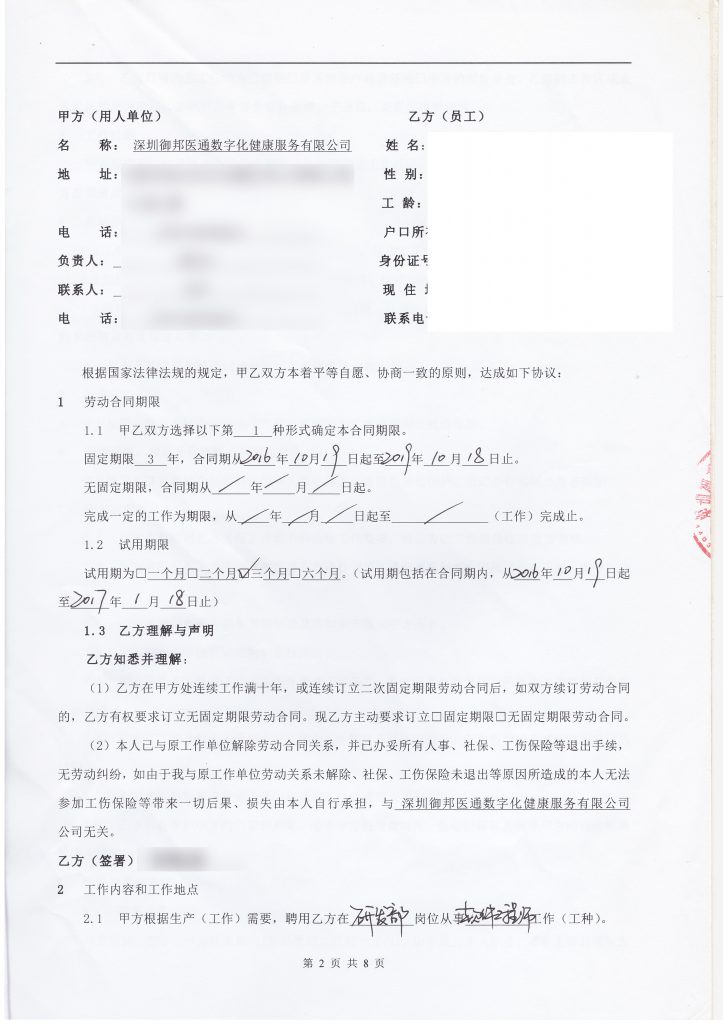 甲方（用人单位） 乙方（员工）
名 称： 深圳御邦医通数字化健康服务有限公司 姓 名：
地 址： 性 别：
工 龄：
电 话： 户口所
负责人： 身份证号
联系人： 现 住
电 话： 联系电
根据国家法律法规的规定，甲乙双方本着平等自愿、协商一致的原则，达成如下协议：
1 劳动合同期限
1.1 甲乙双方选择以下第 1 种形式确定本合同期限。
固定期限 3 年，合同期从2016年10月19日起至2019年10月18日止。
无固定期限，合同期从 / 年 / 月 / 日起。
完成一定的工作为期限，从 / 年 / 月 / 日起至 / （工作）完成止。
1.2 试用期限
试用期为□一个月□二个月☑三个月□六个月。（试用期包括在合同期内，从2016年10月19日起
至2017年1月18日止）
1.3 乙方理解与声明
乙方知悉并理解：
（1）乙方在甲方处连续工作满十年，或连续订立二次固定期限劳动合同后，如双方续订劳动合同
的，乙方有权要求订立无固定期限劳动合同。现乙方主动要求订立□固定期限□无固定期限劳动合同。
（2）本人已与原工作单位解除劳动合同关系，并已办妥所有人事、社保、工伤保险等退出手续，
无劳动纠纷，如由于我与原工作单位劳动关系未解除、社保、工伤保险未退出等原因所造成的本人无法
参加工伤保险等带来一切后果、损失由本人自行承担，与 深圳御邦医通数字化健康服务有限公司
公司无关。
乙方（签署）
2 工作内容和工作地点
2.1 甲方根据生产（工作）需要，聘用乙方在 研发部 岗位从事软件工程师工作（工种）。
第 2 页 共 8 页